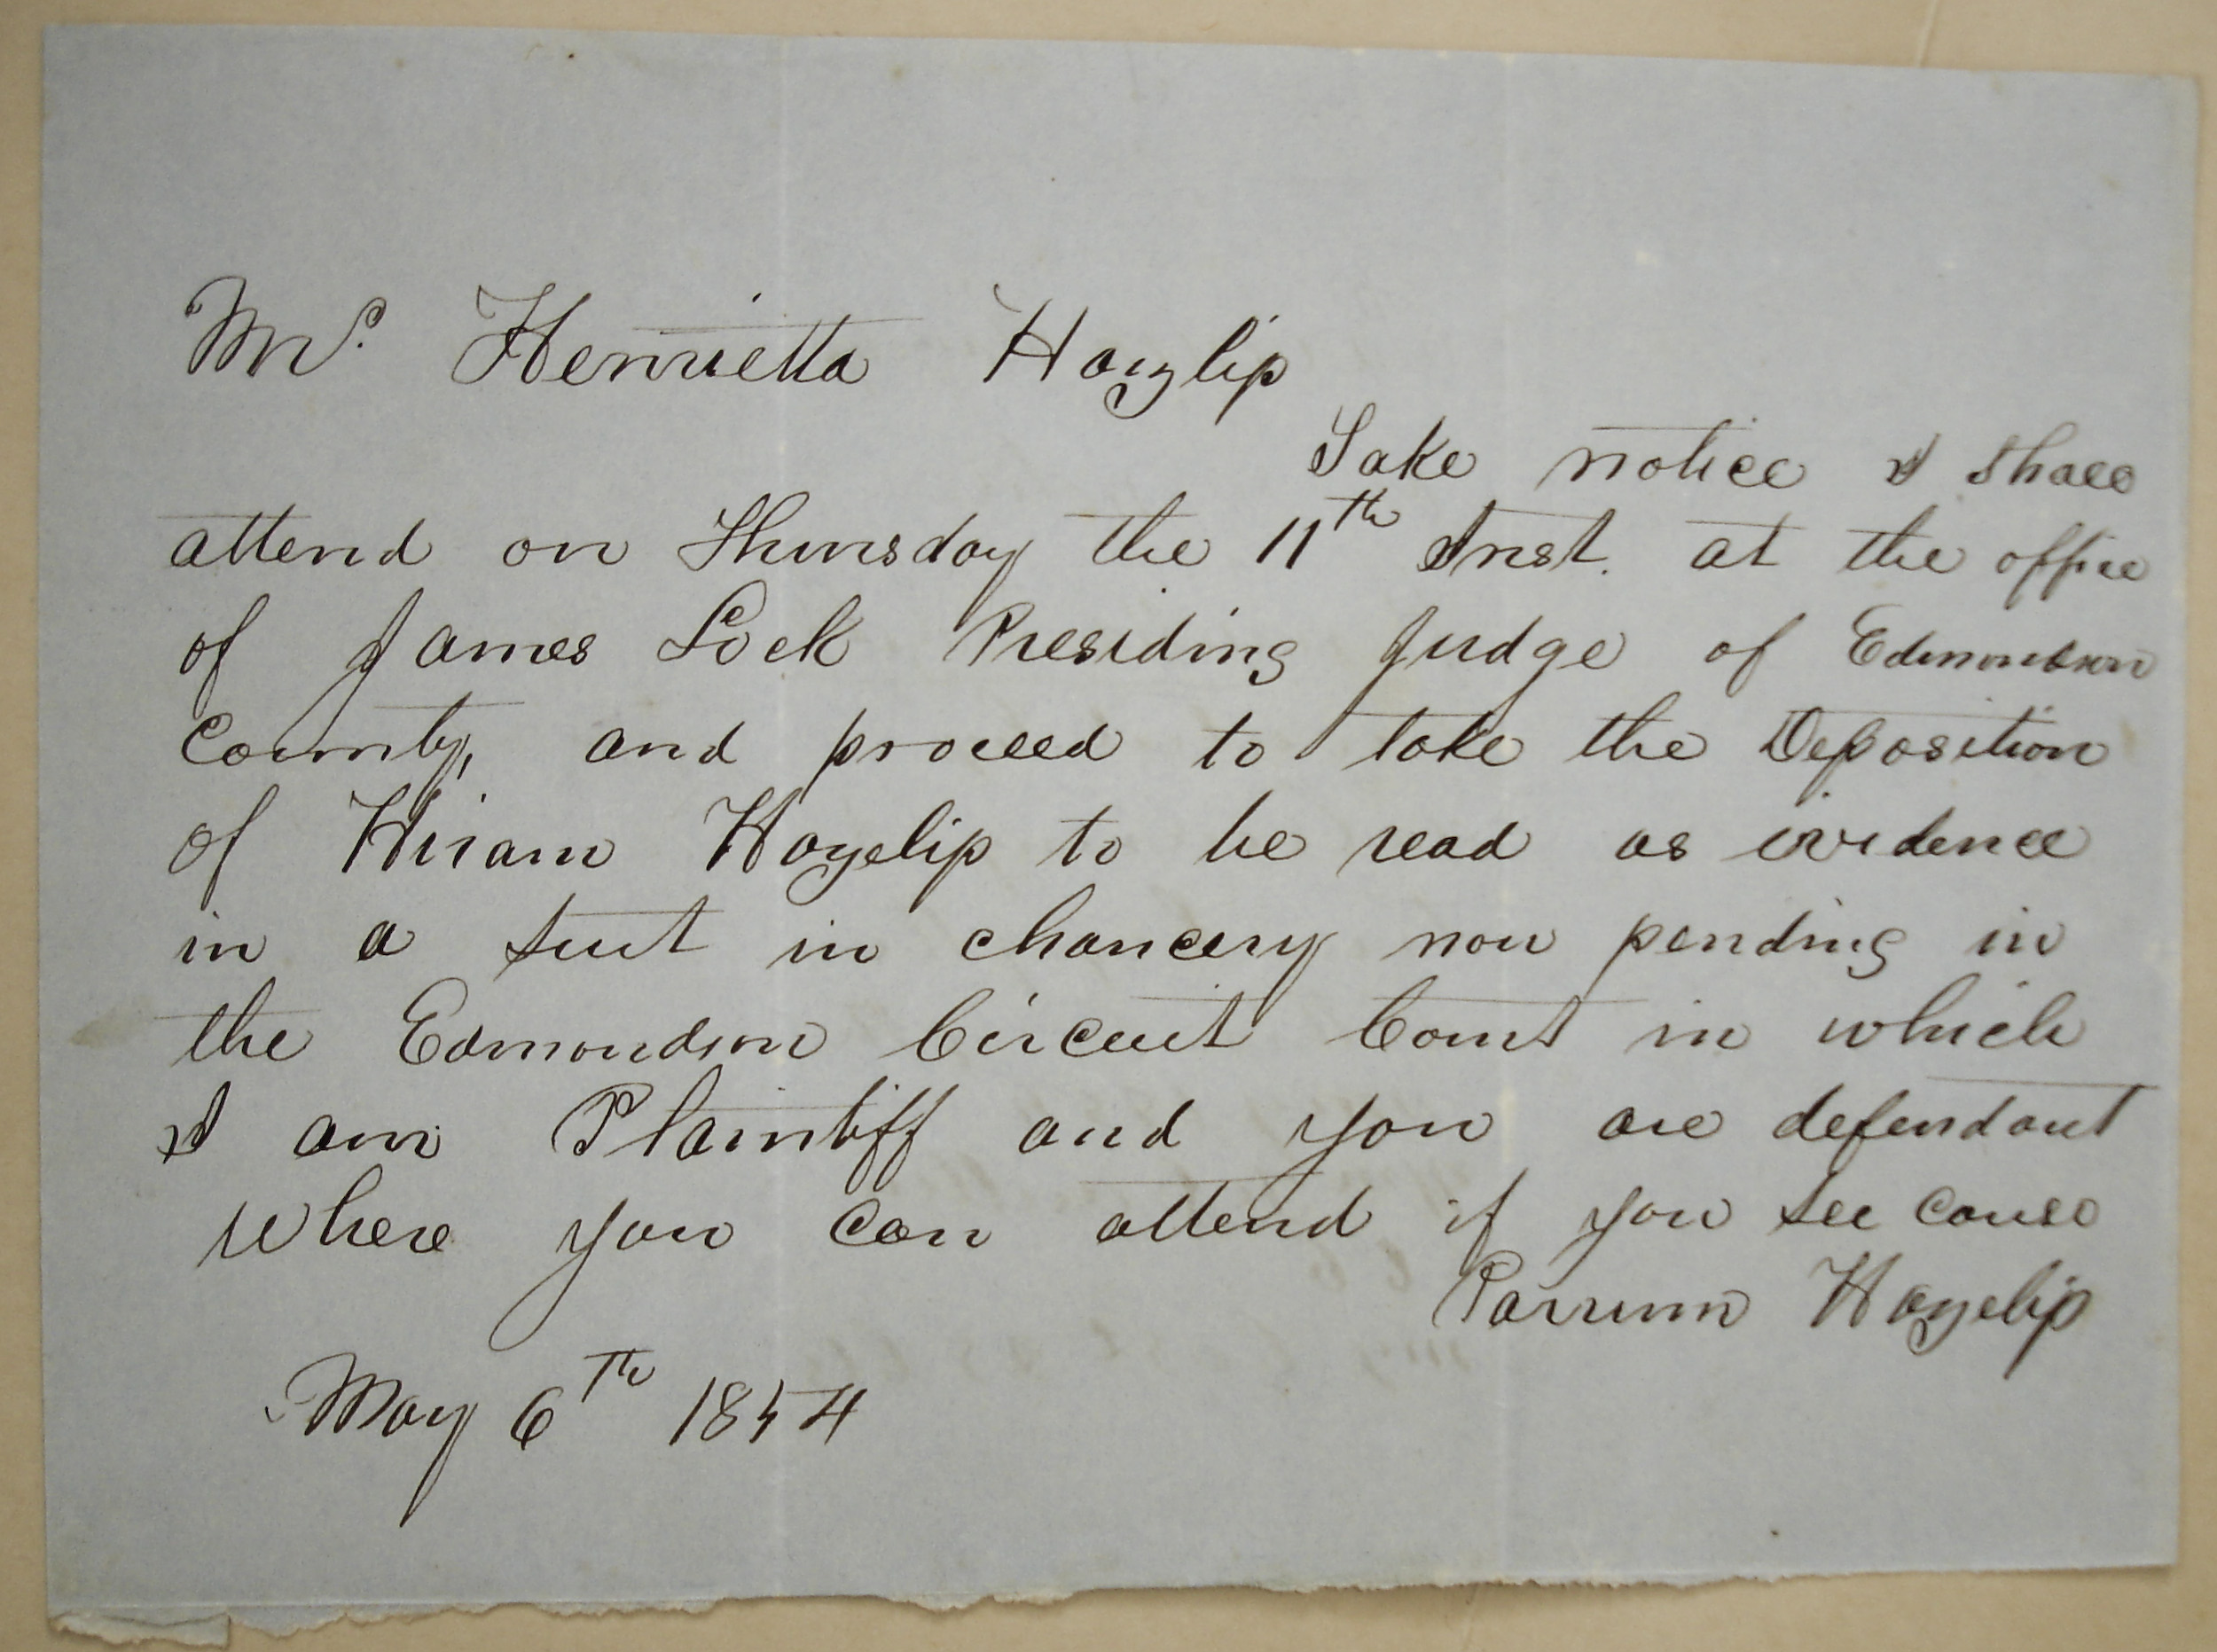 Mrs. Henrietta Hazlip
Take notice I shall
attend on Thursday the 11th Inst. at the office
of James Lock Presiding Judge of Edmondson
County, and proceed to take the Deposition
of Hiram Hazelip to be read as evidence
in a suit in chancery now pending in
the Edmondson Circuit Court in which
I am Plaintiff and you are defendant
where you can attend if you see cause
Parrum Hazelip
May 6th 1854